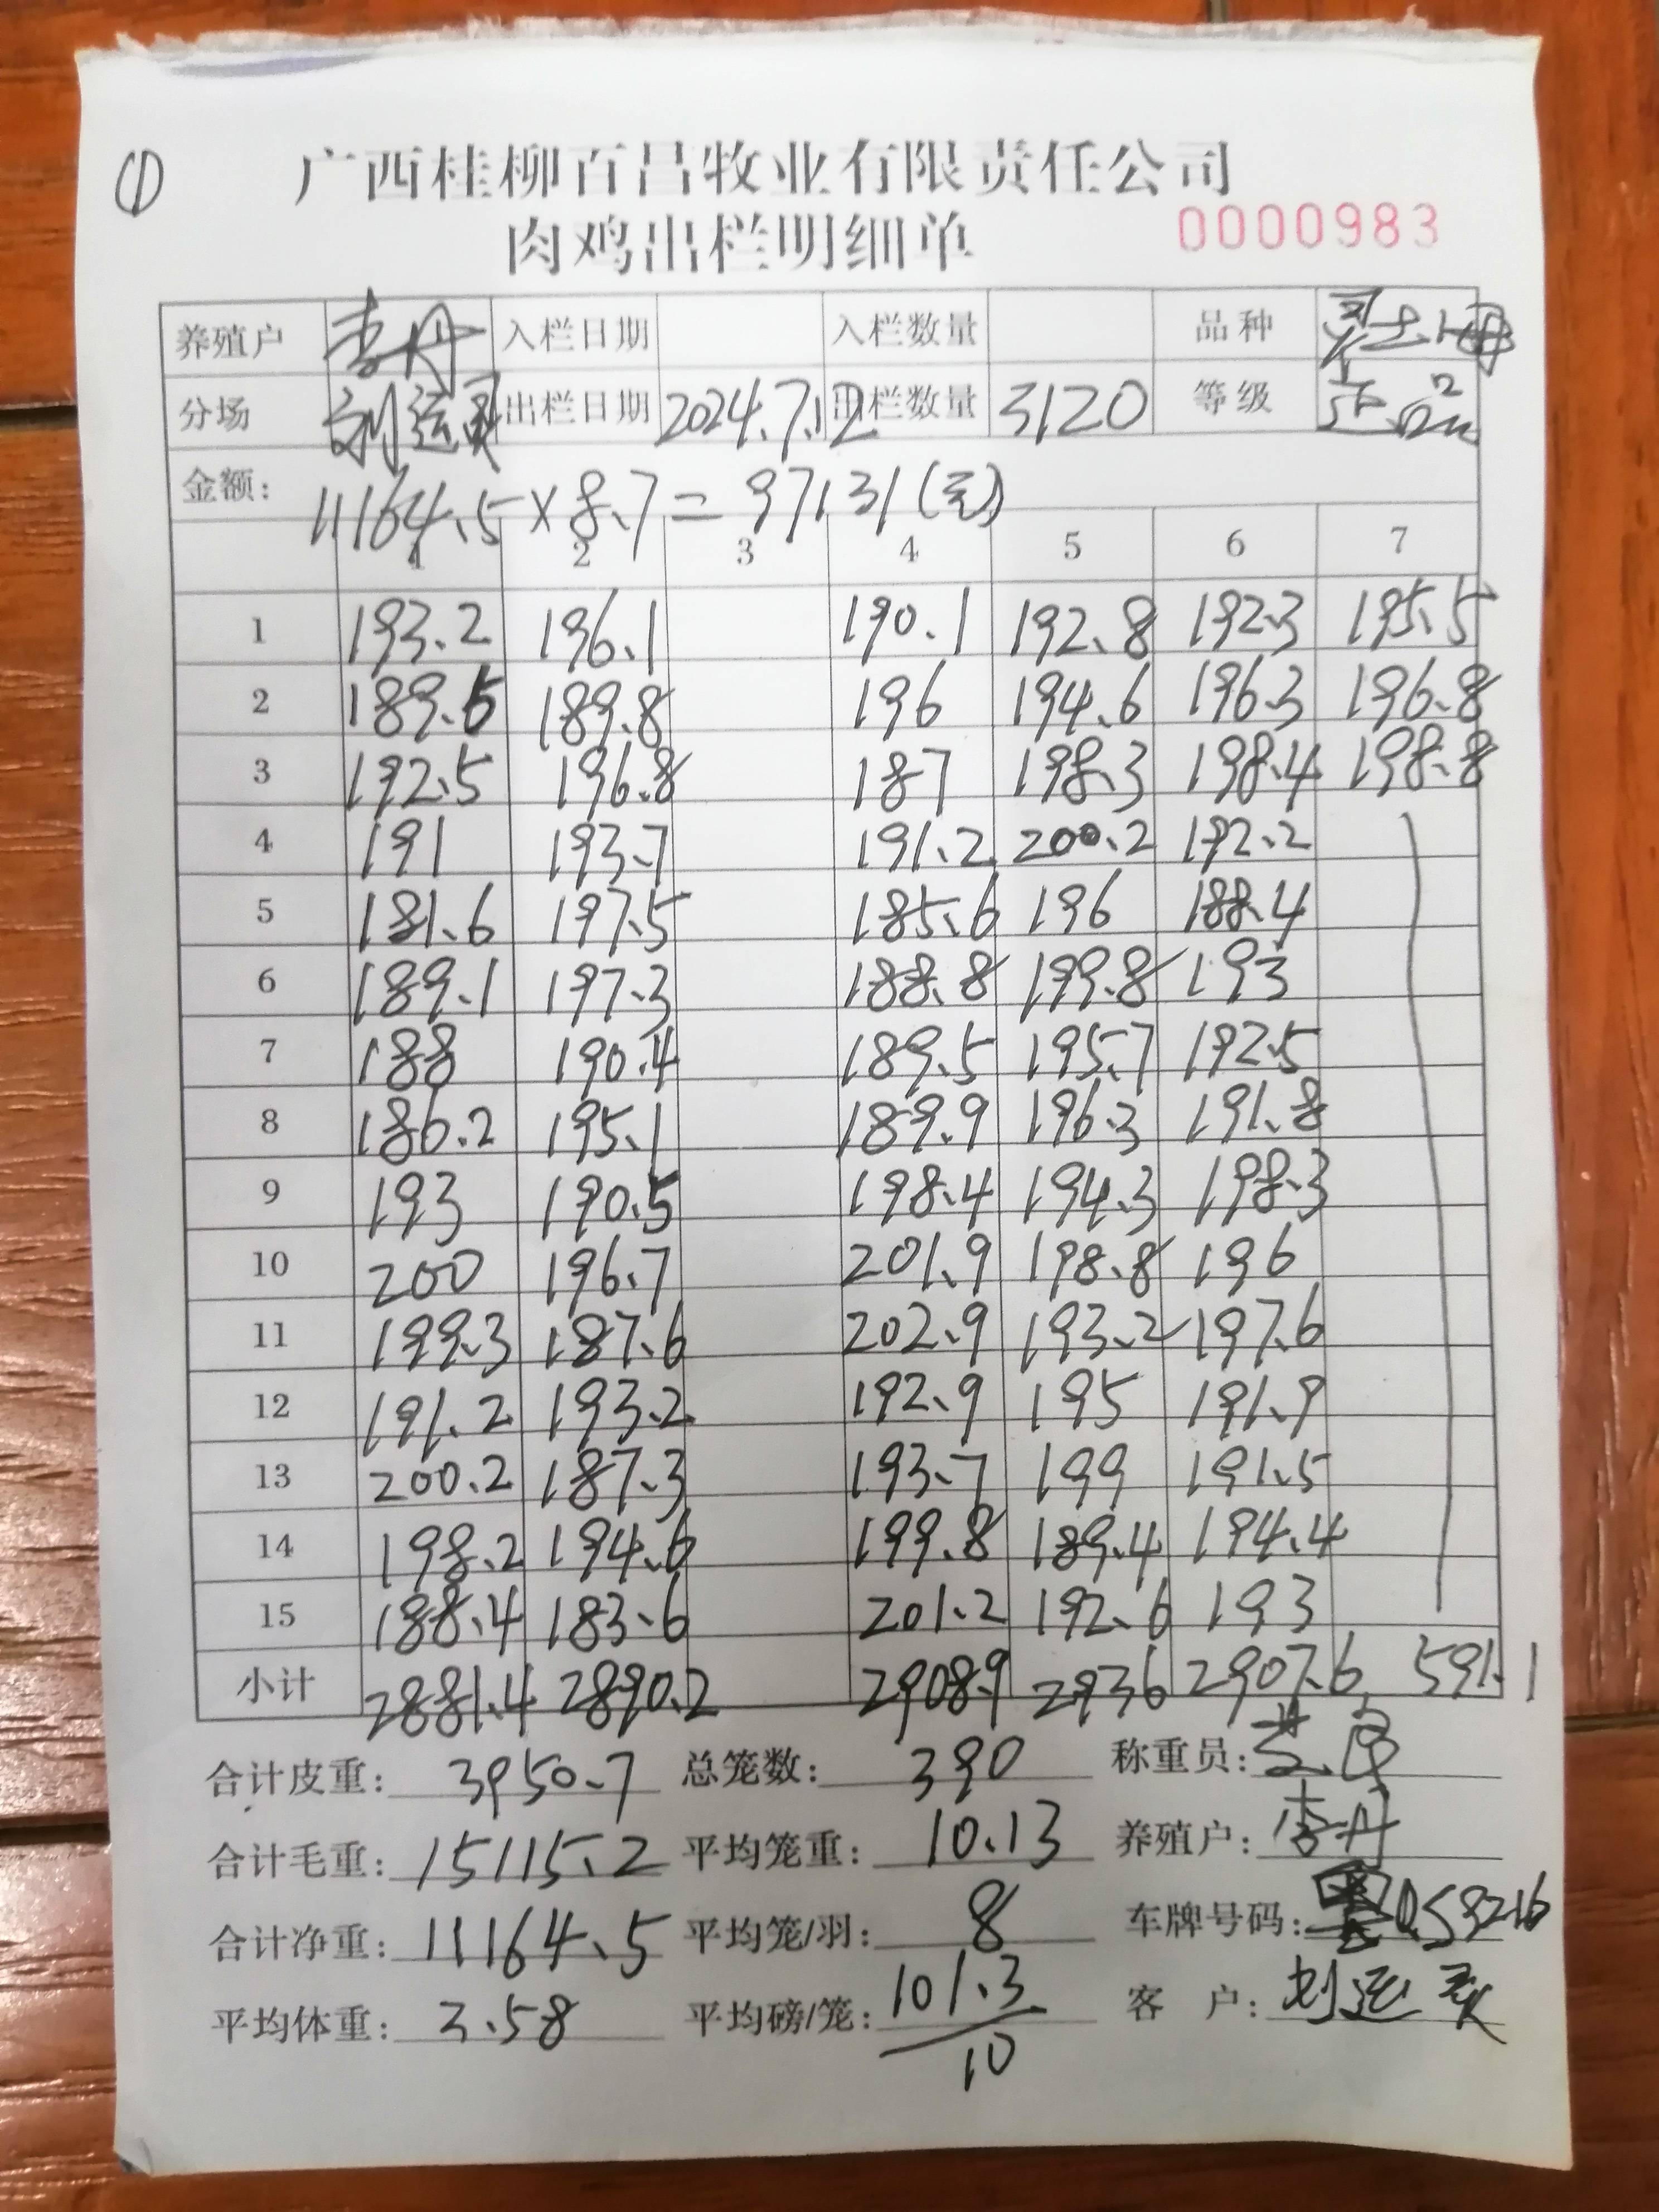 ①
广西桂柳百昌牧业有限责任公司
肉鸡出栏明细单 0000983
养殖户 李丹 入栏日期 入栏数量 品种
分场 刘运 出栏日期 2024.7.12 出栏数量 3120 等级
金额: 11164.5×8.7=97131(元)
1 2 3 4 5 6 7
1 193.2 196.1 190.1 192.8 192.3 195.5
2 189.5 189.8 196 194.6 196.3 196.8
3 192.5 196.8 187 198.3 198.4 198.8
4 191 193.7 191.2 200.2 192.2
5 181.6 197.5 185.6 196 188.4
6 189.1 197.3 188.8 199.8 193
7 188 190.4 189.5 195.7 192.5
8 186.2 195.1 189.9 196.3 191.8
9 193 190.5 198.4 194.3 198.3
10 200 196.7 201.9 198.8 196
11 199.3 187.6 202.9 193.2 197.6
12 191.2 193.2 192.9 195 191.9
13 200.2 187.3 193.7 199 191.5
14 198.2 194.6 199.8 189.4 194.4
15 188.4 183.6 201.2 192.6 193
小计 2881.4 2890.2 2908.9 2936 2907.6 591.1
合计皮重: 3950.7 总笼数: 390 称重员:
合计毛重: 15115.2 平均笼重: 10.13 养殖户: 李丹
合计净重: 11164.5 平均笼/羽: 8 车牌号码:
平均体重: 3.58 平均磅/笼: 101.3/10 客 户: 刘运